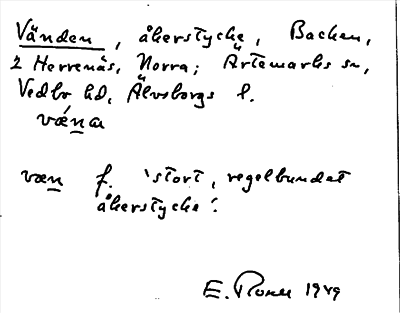 Vänden, åkerstycke, Backen,
2 Herrenäs, Norra; Ärtemarks sn,
Vedbo hd, Älvsborgs l.
væ̀na
væn f. 'stort, regelbundet
åkerstycke'.
E. 1949